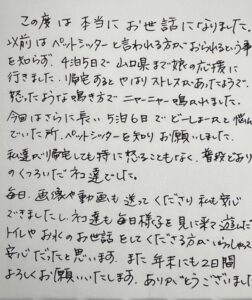 この度は本当にお世話になりました。
以前はペットシッターと言われる方がおられるという事
を知らず、4泊5日で山口県まで娘の応援に
行きました。帰宅するとやはりストレスがあったようで、
怒ったような鳴き方でニャーニャー鳴かれました。
今回はさらに長い5泊6日でどーしようと悩ん
でいた所、ペットシッターを知りお願いしました。
私達が帰宅しても特に怒ることもなく、普段どおり
のくつろいだネコ達でした。
毎日、画像や動画も送ってくださり私も安心
できましたし、ネコ達も毎日様子を見に来て遊んで
トイレやお水のお世話をしてくださる方がいらっしゃって
安心だったと思います。また年末にも2日間
よろしくお願いいたします。ありがとうございました